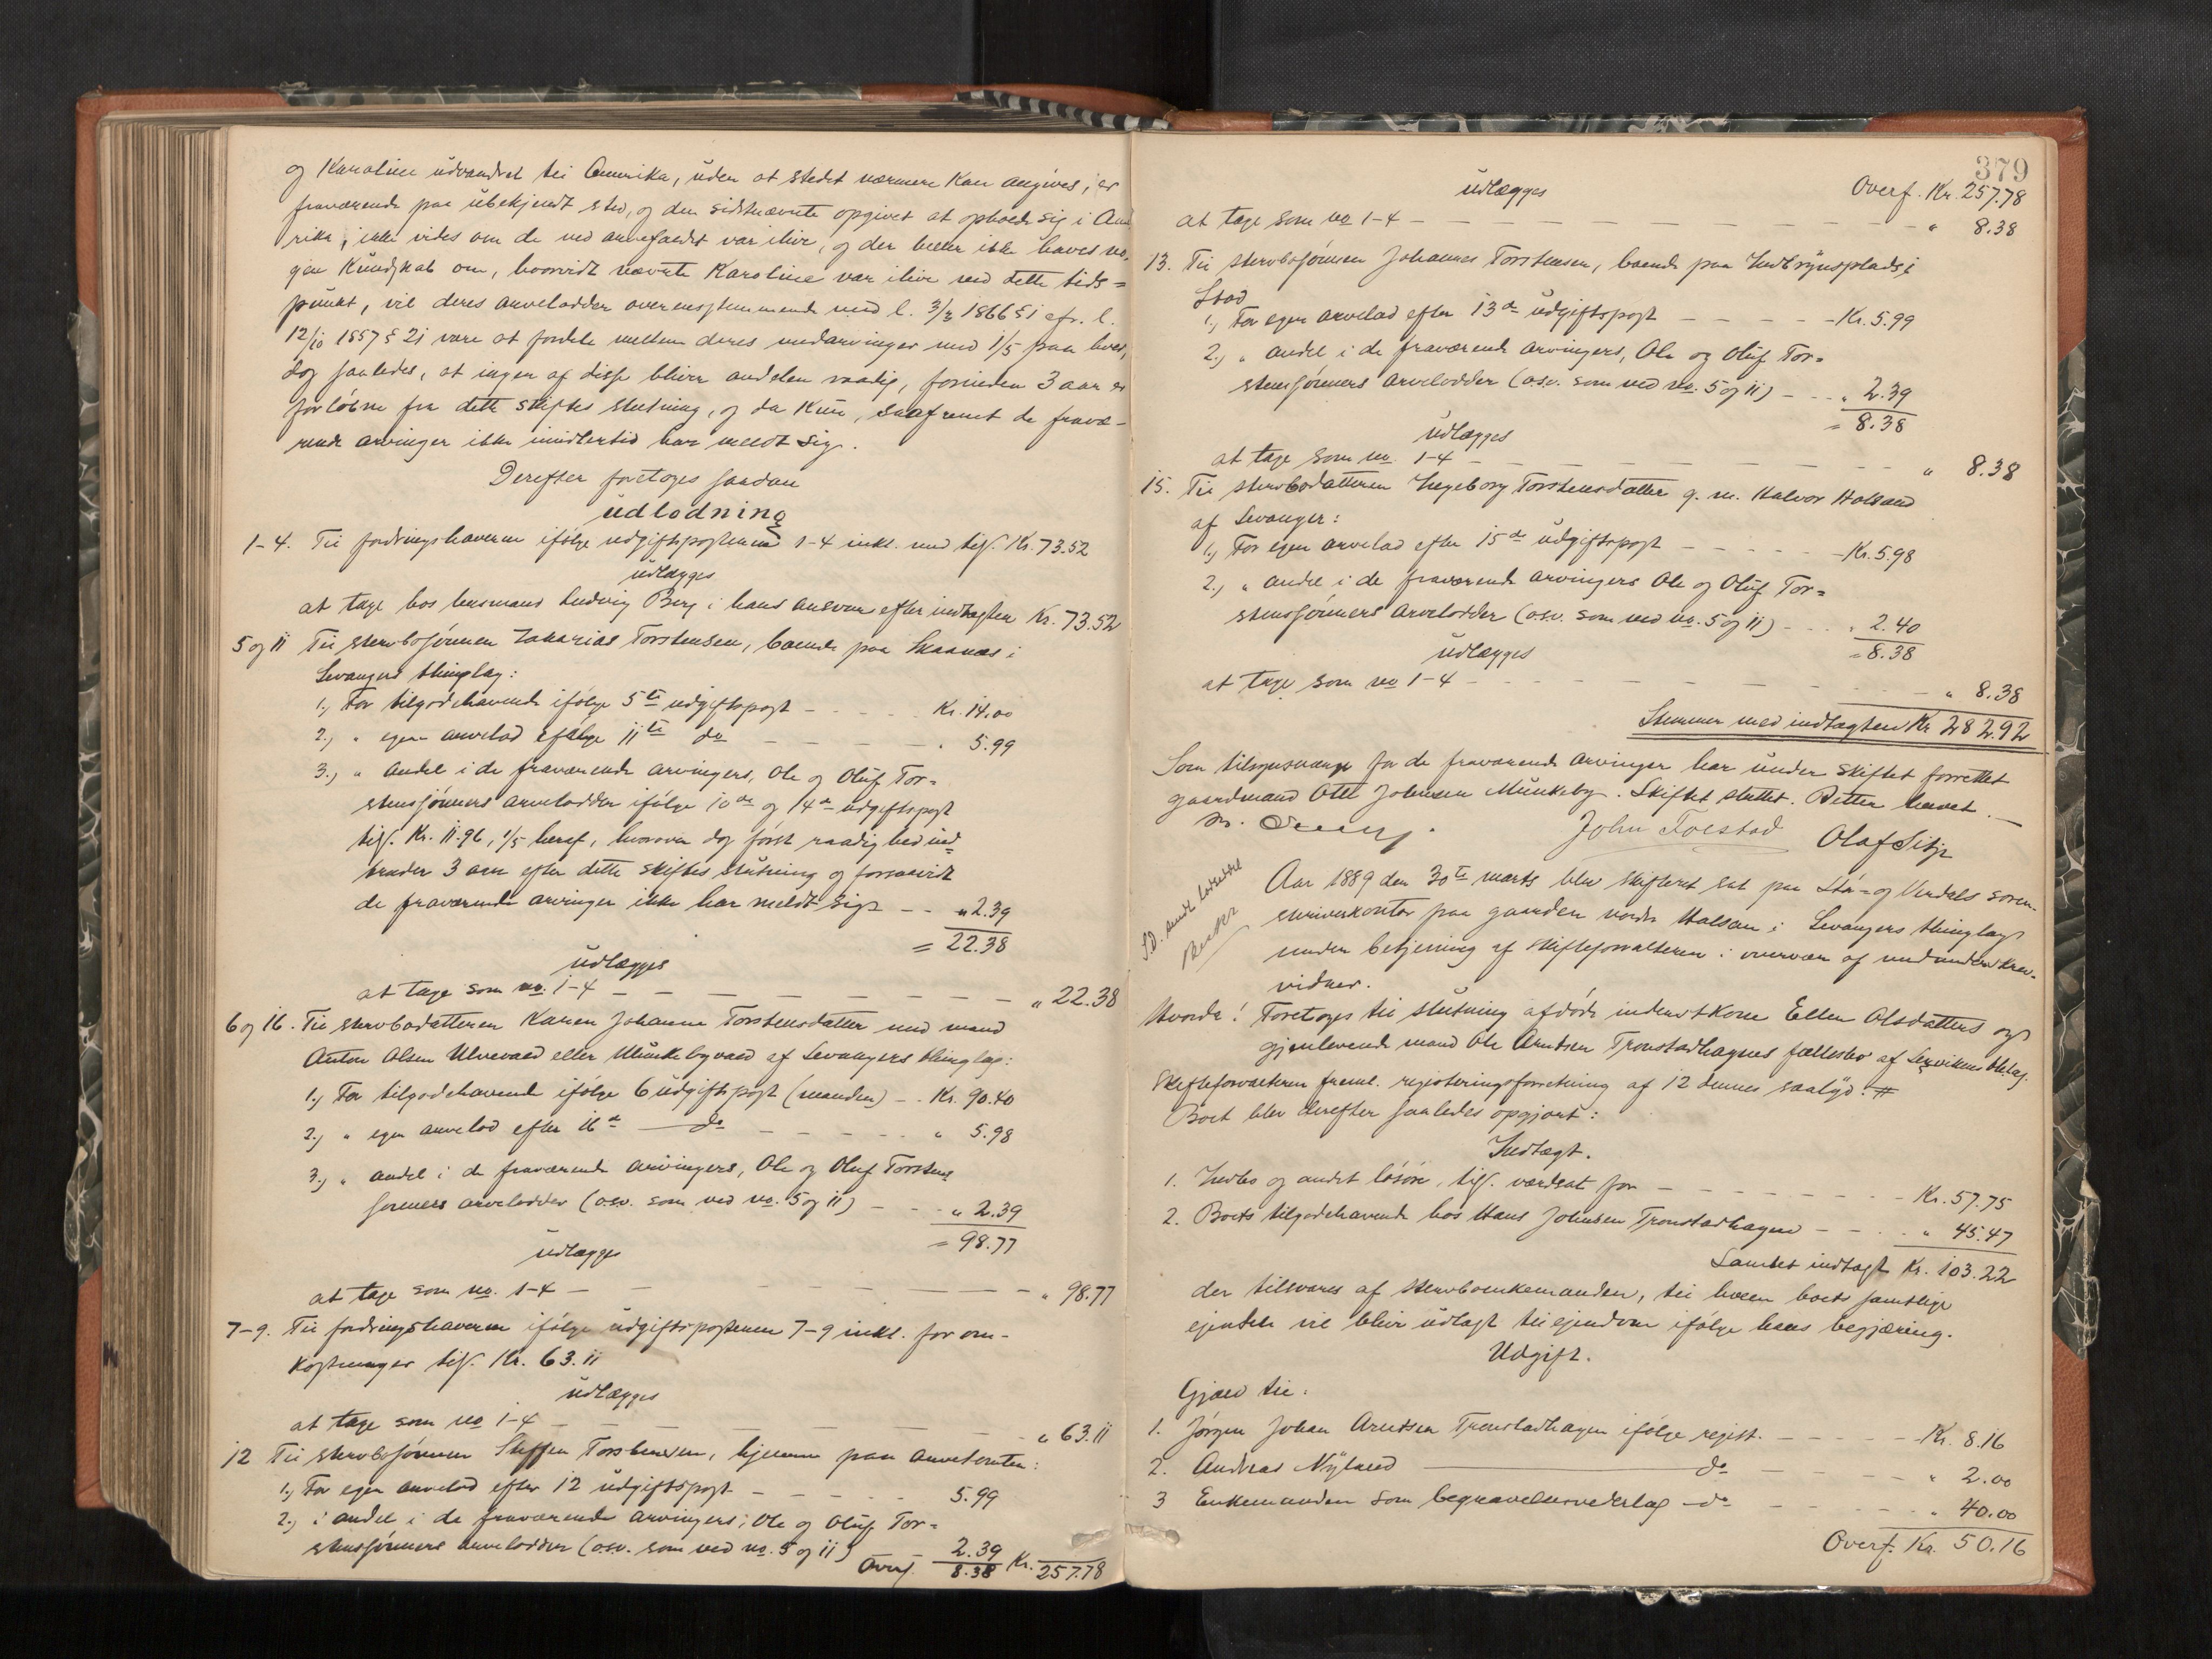 og Karoline udvandret til Amerika, uden at stedet nærmere kan angives, er
fraværende paa ubekjendt sted, og den sidstnævnte opgivet at opholde sig i Ame
rika, ikke vides om de ved arvefaldet var ilive, og der heller ikke haves no-
gen Kundskab om, hvorvidt nævnte Karoline var ilive ved dette tids=
punkt, vil deres arvelodder overensstemmende med l. 3/2 1866 § 1 cfr. l.
12/10 1857 § 21 være at fordele mellem deres medarvinger med 1/5 paa hver,
dog saaledes, at ingen af disse bliver andelen raadig, forinden 3 aar er
forløbne fra dette skiftes slutning, og da kun, saafremt de fravæ-
rende arvinger ikke imidlertid har meldt sig.
Derefter foretoges saadan
udlodning
1-4. Til fordringshaverne ifølge udgiftsposterne 1-4 inkl. med tils. Kr. 73.52
udlægges
at tage hos lensmand Ludvig Berg i hans ansvar efter indtægten Kr. 73.52
5 og 11 Til stervbosønnen Zakarias Torstensen, boende paa Skaanes i
Levangers thinglag:
1, For tilgodehavende ifølge 5te udgiftspost - - - - Kr. 14.00
2, " egen arvelod ifølge 11te do - - - - - " 5.99
3, " Andel i de fraværende arvingers, Ole og Oluf Tor=
stensønners arvelodder ifølge 10de og 14de udgiftspost
tils. Kr. 11.96, 1/5 heraf, hvorover dog først raadighed ind=
træder 3 aar efter dette skiftes slutning og forsaavidt
de fraværende arvinger ikke har meldt sig - - " 2.39
= 22.38
udlægges
at tage som no. 1-4 - - - - - - - - " 22.38
6 og 16. Til stervbodatteren Karen Johanna Torstensdatter med mand
Anton Olsen Ulvevald eller Munkebyvald af Levangers thinglag:
1, For tilgodehavende ifølge 6 udgiftspost (manden) - - Kr. 90.40
2, " egen arvelod efter 16de do - - - - - " 5.98
3, " andel i de fraværende arvingers, Ole og Oluf Torstens
sønners arvelodder (o.s.v. som ved no. 5 og 11) - - - " 2.39
= 98.77
udlægges
at tage som no. 1-4 - - - - - - - " 98.77
7-9. Til fordringshaverne ifølge udgiftsposterne 7-9 inkl. for om-
kostninger tils. Kr. 63.11
udlægges
at tage som no 1-4 - - - - - - - " 63.11
12 Til stervbosønnen Steffen Torstensen, hjemme paa Arvetomten:
1, For egen arvelod efter 12 udgiftspost - - - - - 5.99
2, " andel i de fraværende arvingers, Ole og Oluf Tor=
stensønners arvelodder (o.s.v. som ved no. 5 og 11) 2.39
Overf. 8.38 Kr. 257.78
379
udlægges Overf. Kr. 257.78
at tage som no 1-4 - - - - - - - - " 8.38
13. Til stervbosønnen Johannes Torstensen, boende paa Indbrynsplads i
Stod
1, For egen arvelod efter 13de udgiftspost - - - - - Kr. 5.99
2, " andel i de fraværende arvingers, Ole og Oluf Tor=
stensønners arvelodder (o.s.v. som ved no. 5 og 11) - - - " 2.39
= 8.38
udlægges
at tage som no. 1-4 - - - - - - - " 8.38
15. Til stervbodatteren Ingeborg Torstensdatter g. m. Halvor Holsand
af Levanger:
1, For egen arvelod efter 15de udgiftspost - - - - - Kr. 5.98
2, " andel i de fraværende arvingers Ole og Oluf Tor=
stensønners arvelodder (o.s.v. som ved no. 5 og 11) - - - " 2.40
= 8.38
udlægges
at tage som no 1-4 - - - - - - - - " 8.38
Stemmer med indtægten Kr 282.92
Som tilsynsværge for de fraværende arvinger har under skiftet forrettet
gaardmand Ole Johnsen Munkeby. Skiftet sluttet. Retten hævet. —
John Tolstad Olaf Sitje
Aar 1889 den 30te marts blev skifteret sat paa Stør- og Værdals soren-
skriverkontor paa gaarden nordre Halsan i Levangers thinglag
under betjening af skifteforvalteren i overvær af undertegnede
vidner.
Hvorda! Foretoges til slutning afdøde inderstkone Ellen Olsdatters og
gjenlevende mand Ole Arntsen Tronstadhagens fællesbo af Leksvikens thlag.
Skifteforvalteren freml. registreringsforretning af 12 dennes saalyd: #
Boet blev derefter saaledes opgjort:
Indtægt.
1. Indbo og andet løsøre, tils. værdsat for - - - - - - Kr. 57.75
2. Boets tilgodehavende hos Hans Johnsen Tronstadhagen - - - " 45.47
Samlet indtægt Kr. 103.22
der tilsvares af stervboenkemanden, til hvem boets samtlige
eiendele vil blive udlagt til eiendom ifølge hans begjæring.
Udgift.
Gjæld til:
1. Jørgen Johan Arntsen Tronstadhagen ifølge regist. - - - - - Kr. 8.16
2. Andreas Nyland do - - - - - " 2.00
3 Enkemanden som begravelsesvederlag do - - - - " 40.00
Overf. Kr. 50.16